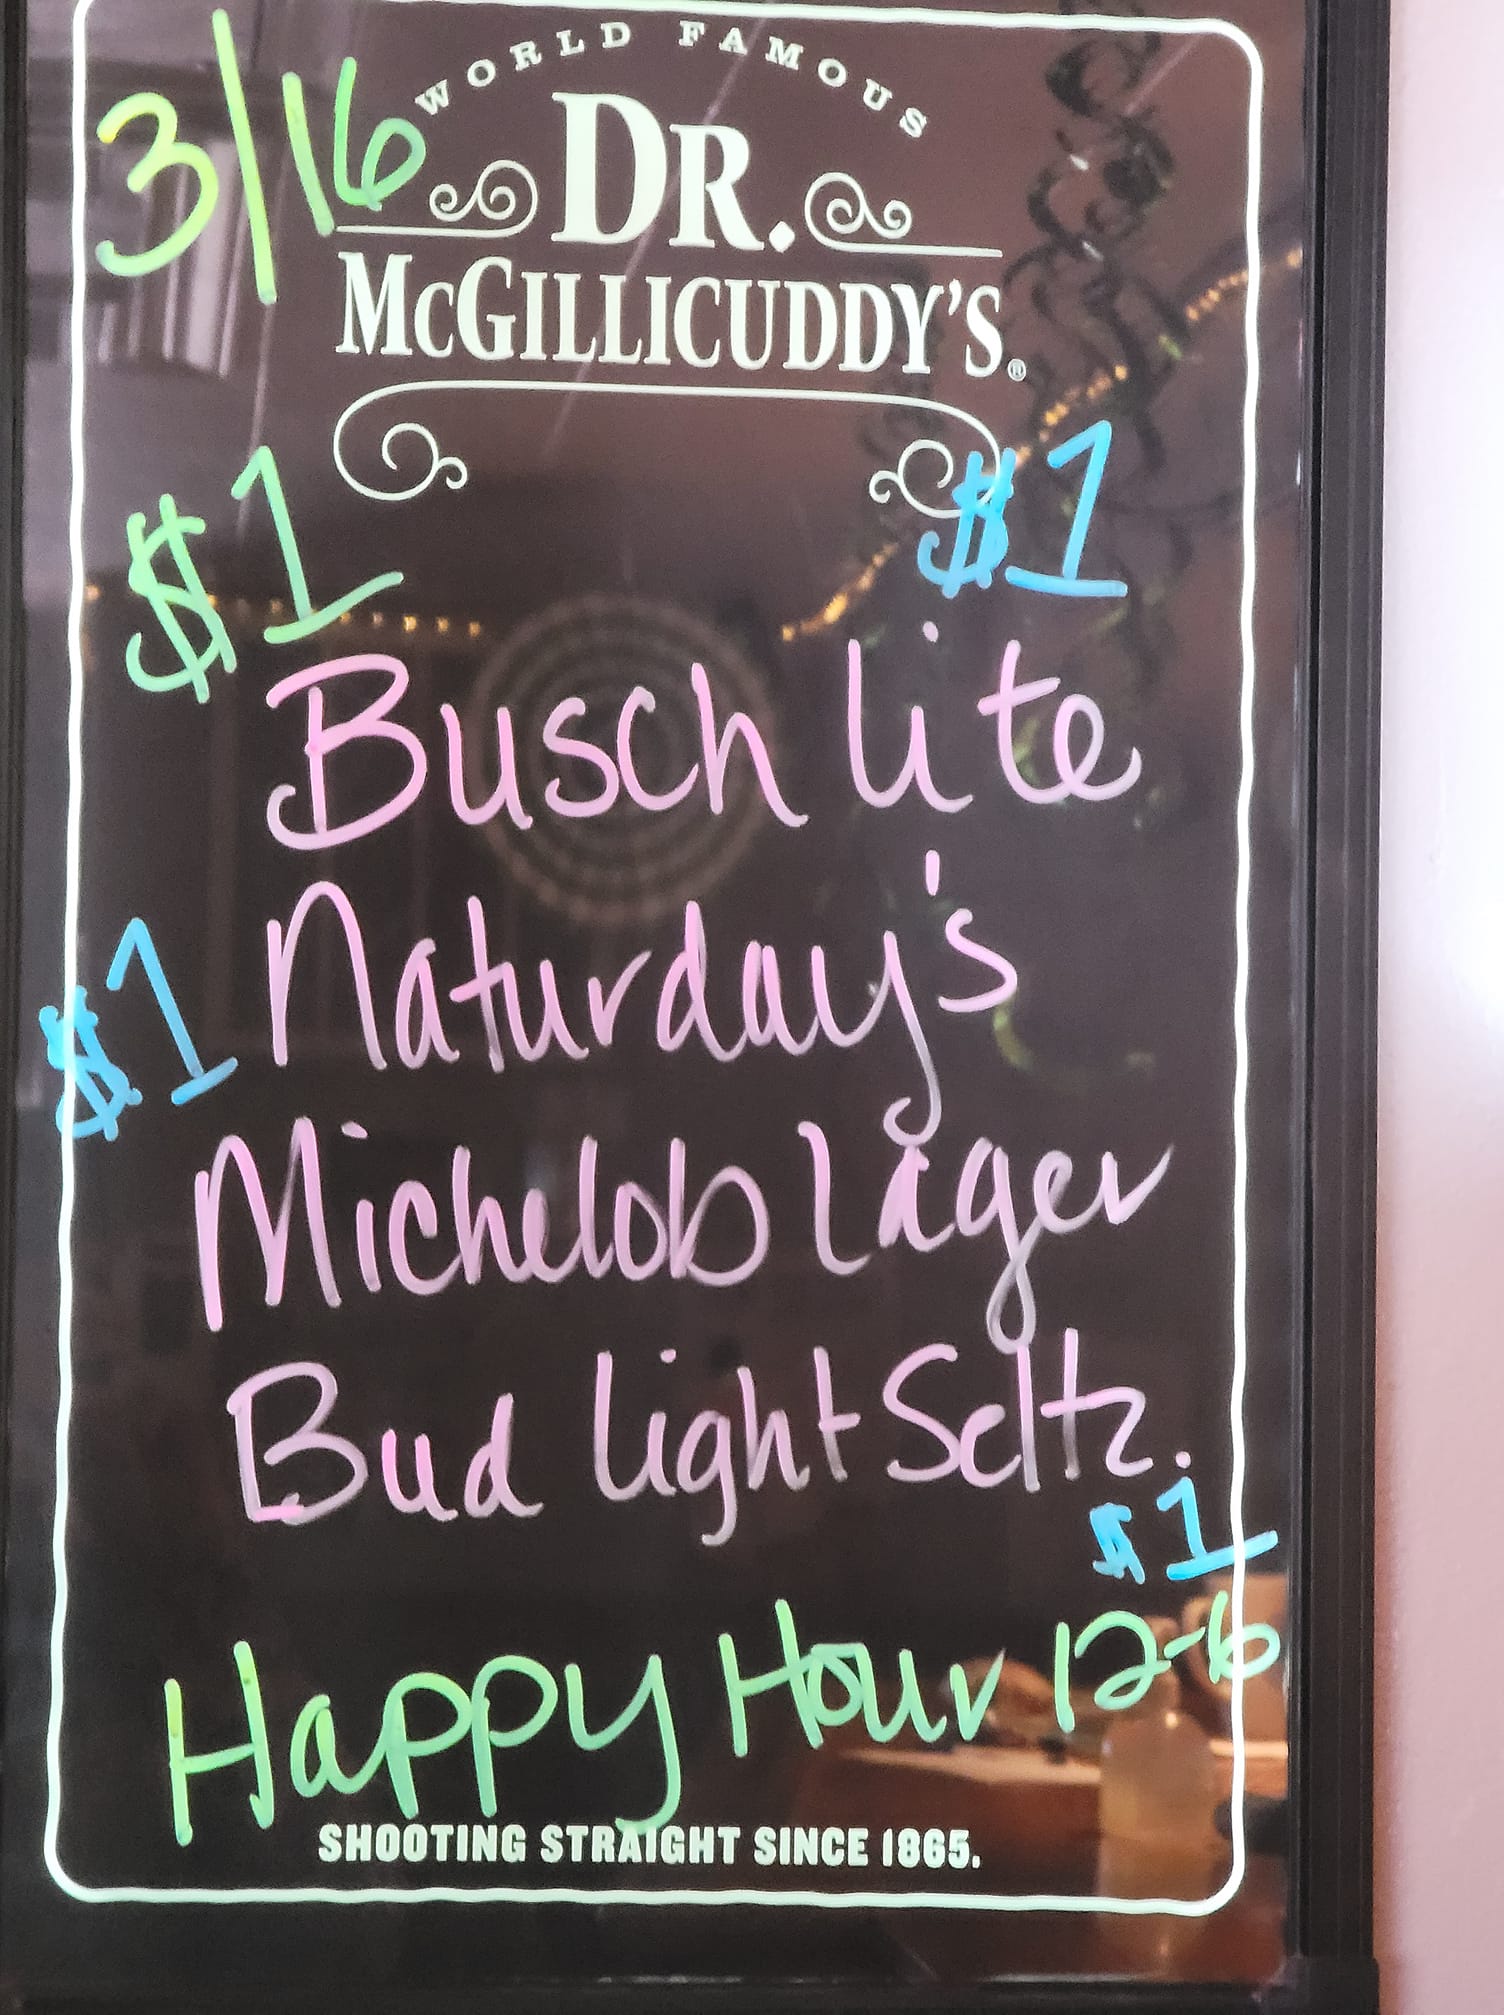 WORLD FAMOUS
3/16
DR.
McGILLICUDDY'S®
$1 $1
Busch Lite
$1 Naturday's
Michelob Lager
Bud Light Seltz.
$1
Happy Hour 12-6
SHOOTING STRAIGHT SINCE 1865.